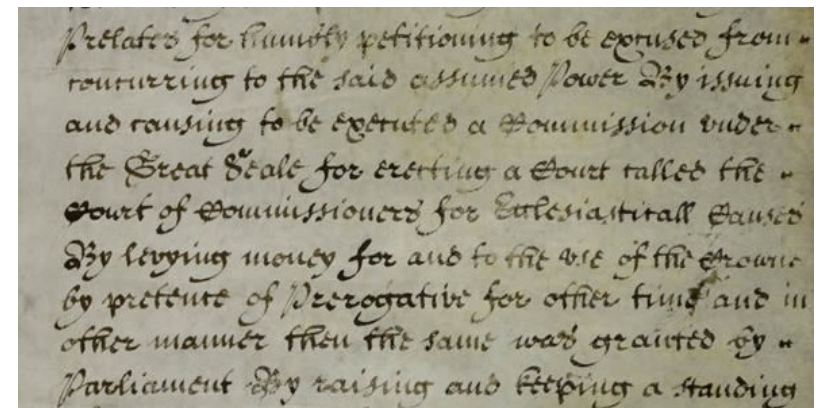 Prelates for humbly petitioning to be excused from
concurring to the said assumed Power By issuing
and causing to be executed a Commission under
the Great Seale for erecting a Court called the
Court of Commissioners for Ecclesiasticall Causes
By levying money for and to the use of the Crowne
by pretence of Prerogative for other time and in
other manner then the same was granted by
Parliament By raising and keeping a standing